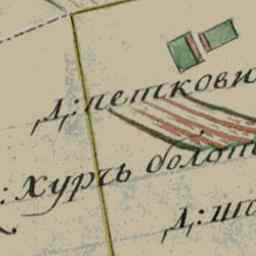 д: петкови
: хурчь болот
д: шп